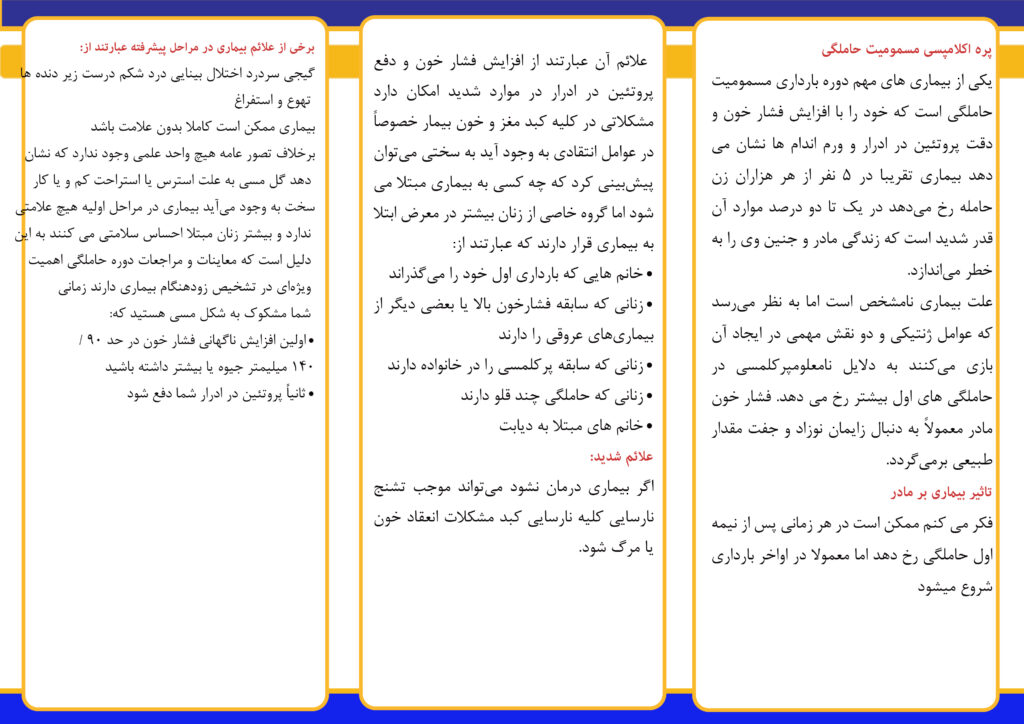 پره اکلامپسی مسمومیت حاملگی
یکی از بیماری های مهم دوره بارداری مسمومیت
حاملگی است که خود را با افزایش فشار خون و
دقت پروتئین در ادرار و ورم اندام ها نشان می
دهد بیماری تقریبا در ۵ نفر از هر هزاران زن
حامله رخ می‌دهد در یک تا دو درصد موارد آن
قدر شدید است که زندگی مادر و جنین وی را به
خطر می‌اندازد.
علت بیماری نامشخص است اما به نظر می‌رسد
که عوامل ژنتیکی و دو نقش مهمی در ایجاد آن
بازی می‌کنند به دلایل نامعلومپرکلمسی در
حاملگی های اول بیشتر رخ می دهد. فشار خون
مادر معمولاً به دنبال زایمان نوزاد و جفت مقدار
طبیعی برمی‌گردد.
تاثیر بیماری بر مادر
فکر می کنم ممکن است در هر زمانی پس از نیمه
اول حاملگی رخ دهد اما معمولا در اواخر بارداری
شروع میشود
علائم آن عبارتند از افزایش فشار خون و دفع
پروتئین در ادرار در موارد شدید امکان دارد
مشکلاتی در کلیه کبد مغز و خون بیمار خصوصاً
در عوامل انتقادی به وجود آید به سختی می‌توان
پیش‌بینی کرد که چه کسی به بیماری مبتلا می
شود اما گروه خاصی از زنان بیشتر در معرض ابتلا
به بیماری قرار دارند که عبارتند از:
• خانم هایی که بارداری اول خود را می‌گذراند
• زنانی که سابقه فشارخون بالا یا بعضی دیگر از
بیماری‌های عروقی را دارند
• زنانی که سابقه پرکلمسی را در خانواده دارند
• زنانی که حاملگی چند قلو دارند
• خانم های مبتلا به دیابت
علائم شدید:
اگر بیماری درمان نشود می‌تواند موجب تشنج
نارسایی کلیه نارسایی کبد مشکلات انعقاد خون
یا مرگ شود.
برخی از علائم بیماری در مراحل پیشرفته عبارتند از:
گیجی سردرد اختلال بینایی درد شکم درست زیر دنده ها
تهوع و استفراغ
بیماری ممکن است کاملا بدون علامت باشد
برخلاف تصور عامه هیچ واحد علمی وجود ندارد که نشان
دهد گل مسی به علت استرس یا استراحت کم و یا کار
سخت به وجود می‌آید بیماری در مراحل اولیه هیچ علامتی
ندارد و بیشتر زنان مبتلا احساس سلامتی می کنند به این
دلیل است که معاینات و مراجعات دوره حاملگی اهمیت
ویژه‌ای در تشخیص زودهنگام بیماری دارند زمانی
شما مشکوک به شکل مسی هستید که:
• اولین افزایش ناگهانی فشار خون در حد ۹۰ /
۱۴۰ میلیمتر جیوه یا بیشتر داشته باشید
• ثانیاً پروتئین در ادرار شما دفع شود